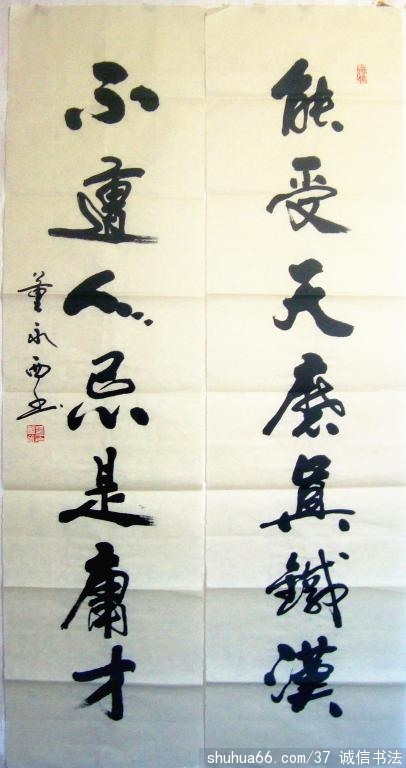 能受天磨真鐵漢
不遭人忌是庸才
董永西书
shuhua66.com/37 诚信书法